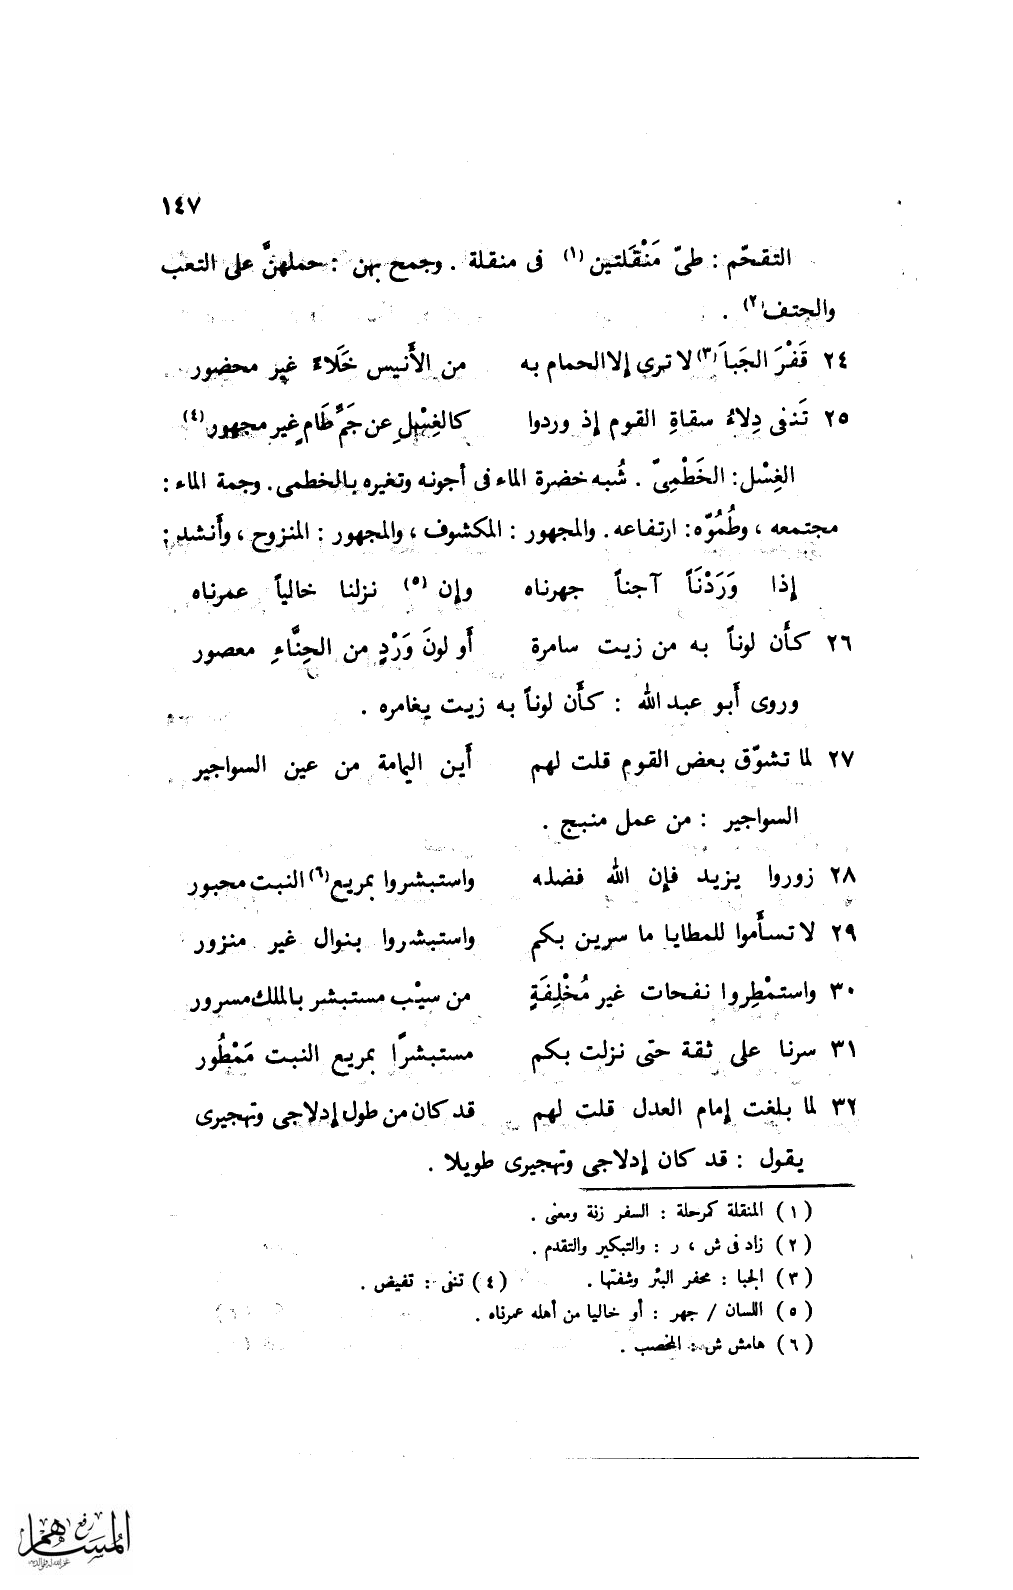 ١٤٧
التقحّم : طىّ مَنْقَلتين (١) فى منقلة . وجمح بهن : حملهنَّ على التعب
والحتف (٢) .
٢٤ قَفْرَ الجَباَ (٣) لا ترى إلا الحمام به من الأَنيس خَلَاءٌ غير محضور
٢٥ تَنفى دِلاءُ سقاةِ القوم إذ وردوا كالغِسْلِ عن جَمٍّ طَامٍ غير مجهور (٤)
الغِسْل : الخَطْمِىّ . شُبه خضرة الماء فى أجونه وتغيره بالخطمى . وجمة الماء :
مجتمعه ، وطُمُوّه : ارتفاعه . والمجهور : المكشوف ، والمجهور : المنزوح ، وأَنشد :
إذا وَرَدْنَاً آجناً جهرناه وإن (٥) نزلنا خالياً عمرناه
٢٦ كأَن لوناً به من زيت سامرة أَو لونَ وَرْدٍ من الحِنَّاءِ معصور
وروى أَبو عبد الله : كأَن لوناً به زيت يغامره .
٢٧ لما تشوّق بعض القوم قلت لهم أَين اليمامة من عين السواجير
السواجير : من عمل منبج .
٢٨ زوروا يزيد فإن الله فضله واستبشروا بمريع (٦) النبت محبور
٢٩ لا تسأَموا للمطايا ما سرين بكم واستبشروا بنوال غير منزور
٣٠ واستمْطِروا نفحات غير مُخْلِفَةٍ من سيْب مستبشر بالملك مسرور
٣١ سرنا على ثقة حتى نزلت بكم مستبشرًا بمريع النبت مَمْطُور
٣٢ لما بلغت إمام العدل قلت لهم قد كان من طول إدلاجى وتهجيرى
يقول : قد كان إدلاجى وتهجيرى طويلا .
(١) المنقلة كمرحلة : السفر زنة ومعنى .
(٢) زاد فى ش ، ر : والتبكير والتقدم .
(٣) الجبا : محفر البئر وشفتها . (٤) تنفى : تفيض .
(٥) اللسان / جهر : أو خاليا من أهله عمرناه .
(٦) هامش ش : المخصب .